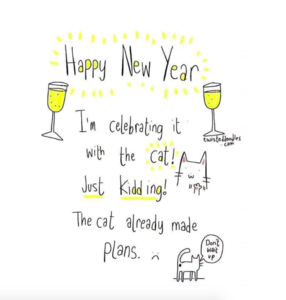 Happy New Year
I'm celebrating it
with the cat!
Just Kidding!
The cat already made
plans.
twisteddoodles
.com
Don't
wait
up